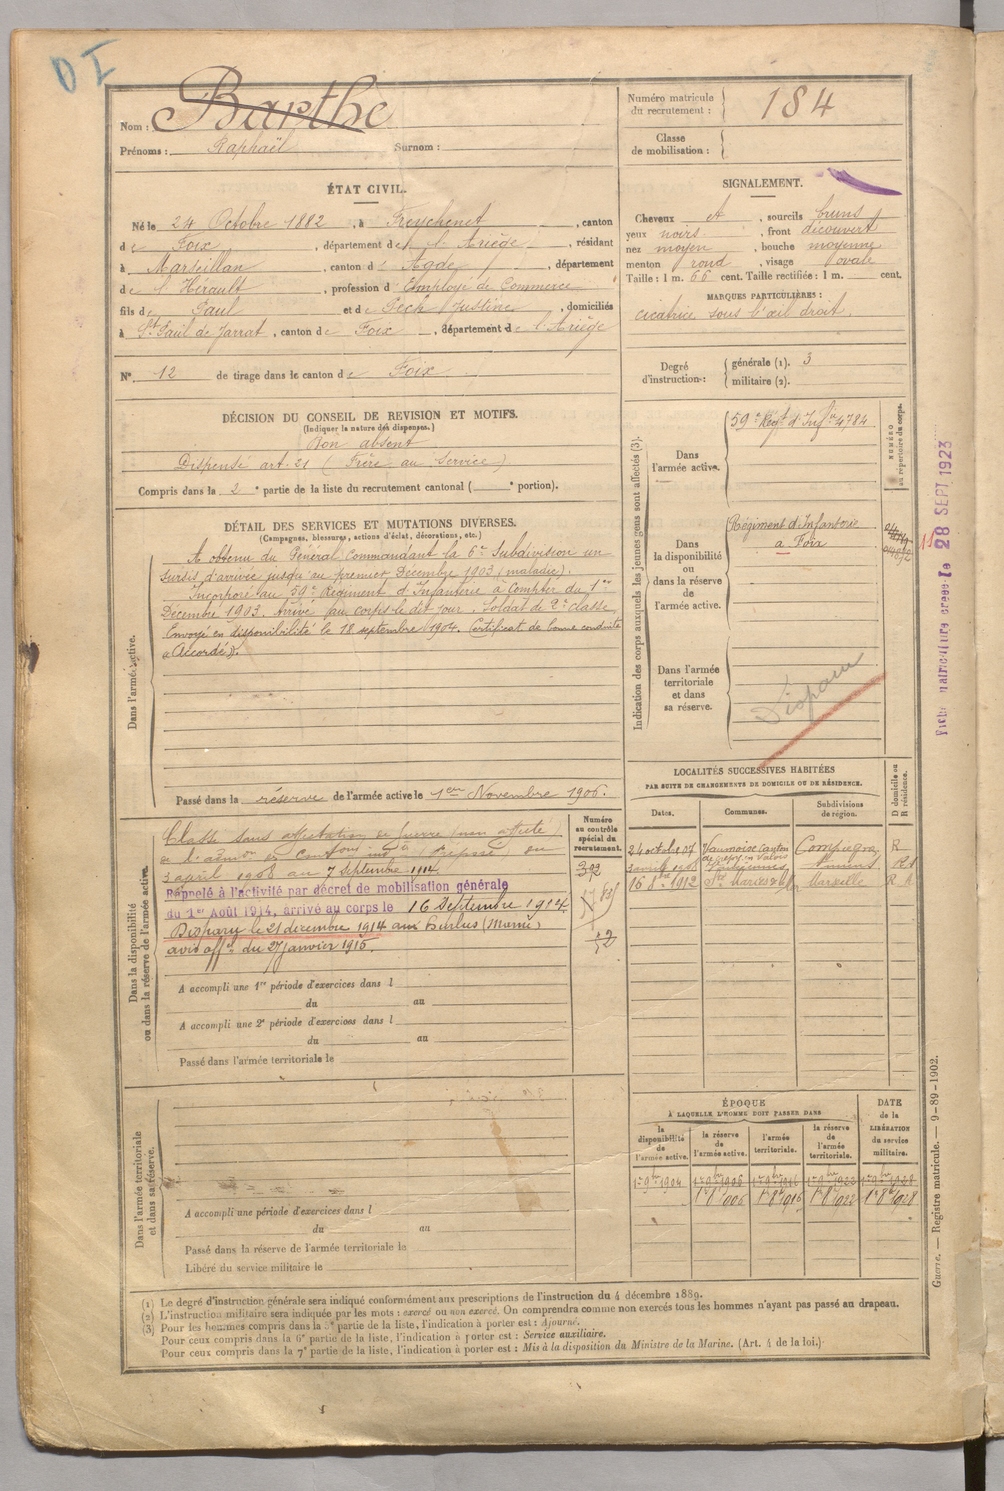 D I
Nom : Barthe
Prénoms : Raphaël Surnom :
Numéro matricule du recrutement : 184
Classe de mobilisation :
ÉTAT CIVIL.
Né le 24 Octobre 1882, à Freychenet, canton
de Foix, département de l'Ariège, résidant
à Marseillan, canton d' Agde, département
de l'Hérault, profession d'Employé de Commerce
fils de Paul et de Pech Justine, domiciliés
à St Paul de Jarrat, canton de Foix, département de l'Ariège
N° 12 de tirage dans le canton de Foix
SIGNALEMENT.
Cheveux et, sourcils bruns
yeux noirs, front découvert
nez moyen, bouche moyenne
menton rond, visage ovale
Taille : 1 m. 66 cent. Taille rectifiée : 1 m. cent.
MARQUES PARTICULIÈRES :
cicatrice sous l'œil droit.
Degré d'instruction : générale (1). 3
militaire (2).
DÉCISION DU CONSEIL DE REVISION ET MOTIFS.
(Indiquer la nature des dispenses.)
Bon absent
Dispensé art. 21 (Frère au Service)
Compris dans la 2e partie de la liste du recrutement cantonal ( e portion).
DÉTAIL DES SERVICES ET MUTATIONS DIVERSES.
(Campagnes, blessures, actions d'éclat, décorations, etc.)
Dans l'armée active.
A obtenu du Général Commandant la 6e Subdivision un
sursis d'arrivée jusqu'au premier Décembre 1903 (maladie).
Incorporé au 59e Régiment d'Infanterie à compter du 1er
Décembre 1903. Arrivé au corps le dit jour. Soldat de 2e classe
Envoyé en disponibilité le 18 septembre 1904. Certificat de bonne conduite
"Accordé".
Passé dans la réserve de l'armée active le 1er Novembre 1906.
Indication des corps auxquels les jeunes gens sont affectés (3).
NUMÉRO au répertoire du corps.
Dans l'armée active.
59e Régt d'Infie 4784
Dans la disponibilité ou dans la réserve de l'armée active.
Régiment d'Infanterie
à Foix
Dans l'armée territoriale et dans sa réserve.
Disparu
Fiche matriculaire créée le 28 SEPT 1923
Dans la disponibilité ou dans la réserve de l'armée active.
Numéro au contrôle spécial du recrutement.
Classé sans affectation
3 avril 1908 au 7 septembre 1914
Rappelé à l'activité par décret de mobilisation générale
du 1er Août 1914, arrivé au corps le 16 Septembre 1914
Disparu le 21 décembre 1914 aux Hurlus (Marne)
avis offel du 27 janvier 1915.
A accompli une 1re période d'exercices dans l
du au
A accompli une 2e période d'exercices dans l
du au
Passé dans l'armée territoriale le
LOCALITÉS SUCCESSIVES HABITÉES
PAR SUITE DE CHANGEMENTS DE DOMICILE OU DE RÉSIDENCE.
Dates. Communes. Subdivisions de région. D domicile ou R résidence.
24 octob. 07 Vaumoise canton de Crépy en Valois Compiègne R
3 avril 1908 Amiens
16 8bre 1912 Stes Maries Marseille R
Dans l'armée territoriale et dans sa réserve.
A accompli une période d'exercices dans l
du au
Passé dans la réserve de l'armée territoriale le
Libéré du service militaire le
ÉPOQUE
À LAQUELLE L'HOMME DOIT PASSER DANS
la disponibilité de l'armée active. la réserve de l'armée active. l'armée territoriale. la réserve de l'armée territoriale. DATE de la LIBÉRATION du service militaire.
1er 9bre 1904 1er 9bre 1906 1er 9bre 1916 1er 9bre 1922 1er 9bre 1928
1er 8bre 1906 1er 8bre 1916 1er 8bre 1922 1er 8bre 1928
Guerre. — Registre matricule. — 9-89-1902.
(1) Le degré d'instruction générale sera indiqué conformément aux prescriptions de l'instruction du 4 décembre 1889.
(2) L'instruction militaire sera indiquée par les mots : exercé ou non exercé. On comprendra comme non exercés tous les hommes n'ayant pas passé au drapeau.
(3) Pour les hommes compris dans la 5e partie de la liste, l'indication à porter est : Ajourné.
Pour ceux compris dans la 6e partie de la liste, l'indication à porter est : Service auxiliaire.
Pour ceux compris dans la 7e partie de la liste, l'indication à porter est : Mis à la disposition du Ministre de la Marine. (Art. 4 de la loi.)